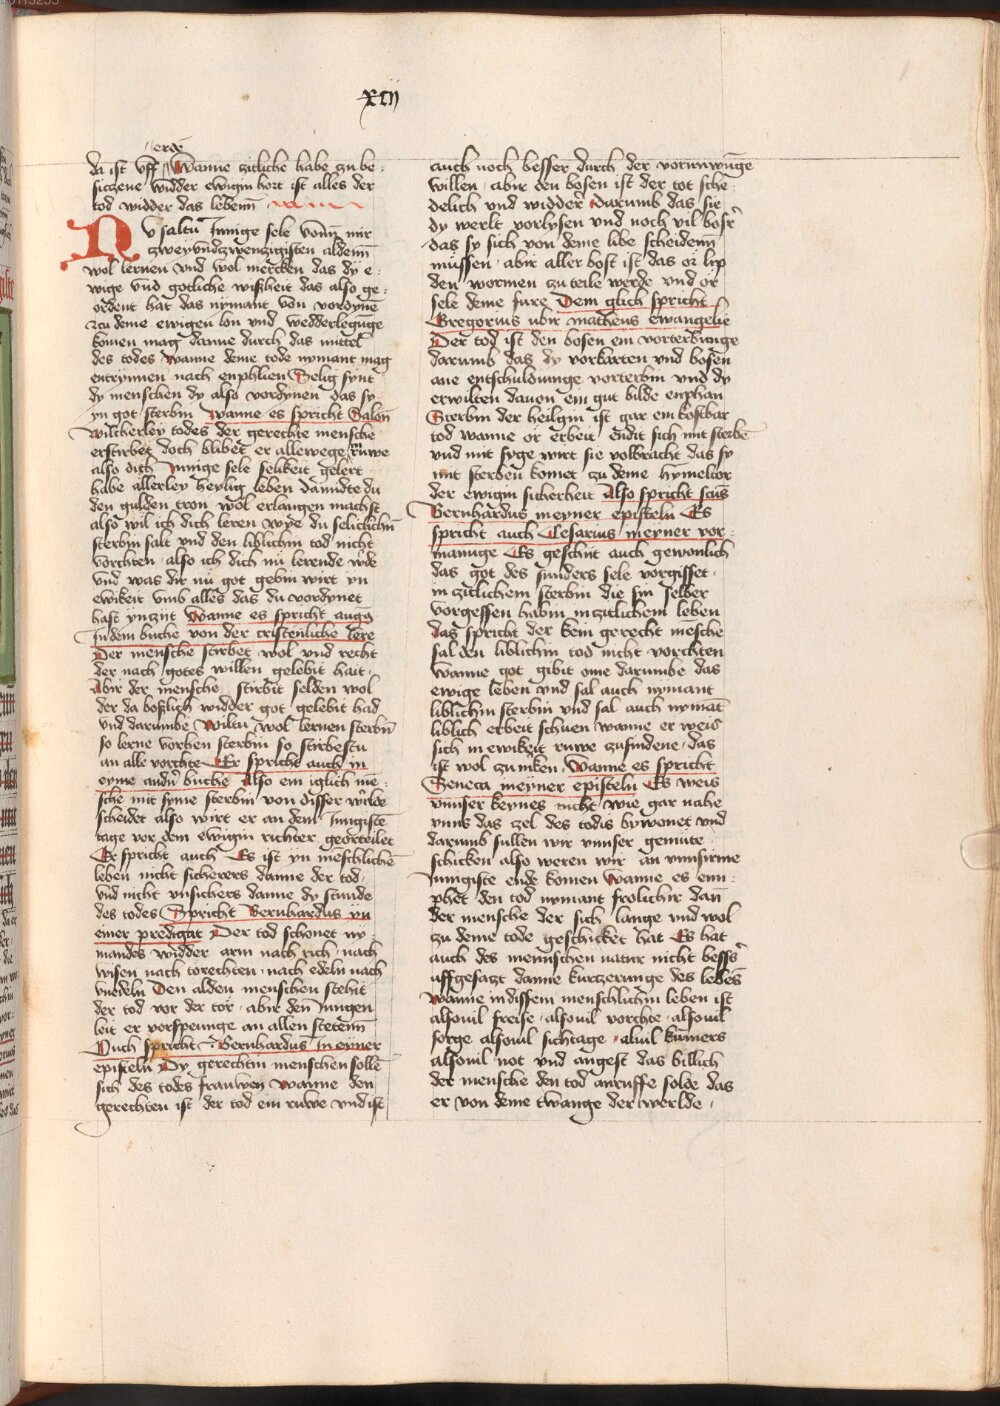 xcij
erde
da ist uff Wanne zitliche habe zu be-
siczene widder ewigin hort ist alles der
tod widder das lebenn
NU saltu Innige sele vonn mir
zweyundzwenzigisten aldenn
wol lernen und wol mercken das dy e-
wige und gotliche wißheit das also ge-
ordent hat das nymant von vordyne
zcu deme ewigen lon und wedderlegūge
komen mag danne durch das mittel
des todes wanne deme tode nymant mag
entrynnen nach enphlien Selig synt
dy menschen dy also vordynen das sy
yn got sterbin Wanne es spricht Salon
Wilcherley todes der gerechte mensche
erstirbet doch blibet er allewege ruwe
also dich Innige sele selikeit gelert
habe allerley heylig leben damidte du
den gulden tron wol erlangen machst
also wil ich dich leren wye du seliclichn
sterbin salt und den liblichin tod nicht
vorchten also ich dich nu lerende wde
und was dir nu got gebin wirt yn
ewikeit umb alles das du vordynet
hast ynzijt Wanne es spricht augus
Indem buche von der cristenliche lere
Der mensche stirbet wol und recht
der nach gotes willen gelebit hait
Abir der mensche stirbit selden wol
der da boßlich widder got gelebit had
und darumbe wiltu wol lernen sterbn
so lerne vorhen sterbin so stirbestu
an alle vorchte Er spricht auch in
eyme andn buche Also ein iglich me-
sche mit syme sterbin von disser wilde
scheidet also wirt er an dem Jungiste
tage vor dem ewigin richter georteilet
Er spricht auch Es ist yn meschliche
leben nicht sicherers danne der tod
und nicht unsichers danne dy stunde
des todes Spricht Bernhardus yn
einer predigat Der tod schonet ny-
mandes widder arm nach rich nach
wisen nach torechten nach edeln nach
unedeln Den alden menschen stehit
der tod vor der tor abir den Jungen
leit er vorspeunge an allen stetenn
Auch spricht Bernhardus in eyner
episteln Dy gerechtin menschen solle
sich des todes frauwen wanne den
gerechten ist der tod ein ruwe und ist
auch noch besser durch der vornuwuge
willen abir den bosen ist der tot sche-
delich und widder darumb das sie
dy werlt vorlysen und noch vil bosr
das sy sich von deme libe scheidenn
mussen abir aller bost ist das or lip
den wormen zu teile werde und or
sele deme fure Dem glich spricht
Gregorius ubir matheus ewangelie
Der tod ist den bosen ein vorterbunge
darumb das dy vorkarten und bosen
ane entschuldunge vorterbin und dy
erwilten dauon ein gut bilde enphan
Sterbin der heilgin ist gar ein kostbar
tod wanne or erbeit endit sich mit sterbe
und mit syge wirt sie volbracht das sy
mit sterben komet zu deme hymeltor
der ewigin sicherheit Also spricht scus
Bernhardus in eyner episteln Es
spricht auch Cesarius in eyner vor-
manuge Es geschit auch gewonlich
das got des sunders sele vorgisset
in zitlichem sterbin die sin selber
vorgessen habin in zitlichem leben
das spricht der kein gerecht mesche
sal den liblichin tod nicht vorchten
wanne got gibit ome darumbe das
ewige leben und sal auch nymant
liblichin sterbin und sal auch nymat
liblich erbeit schuen wanne er weis
sich in ewikeit ruwe zufindene das
ist wol zu mken Wanne es spricht
Seneca in eyner episteln Es weis
unnser keynes nicht wie gar nahe
unns das zel des todis bywonet und
darumb sullen wir unnser gemute
schicken also weren wir an unnsirme
Jungiste ende komen Wanne es em-
phet den tod nymant frolichir dan
der mensche der sich lange und wol
zu deme tode geschicket hat Es hat
auch des mennschen natur nicht bessrs
uffgesatzt danne kurczerunge des lebes
wanne in dissem menschlichin leben ist
alsouil freise alsouil vorchte alsouil
sorge alsouil sichtage aluil kumers
alsouil not und angest das billich
der mensche den tod anruffe solde das
er von deme twange der werlde